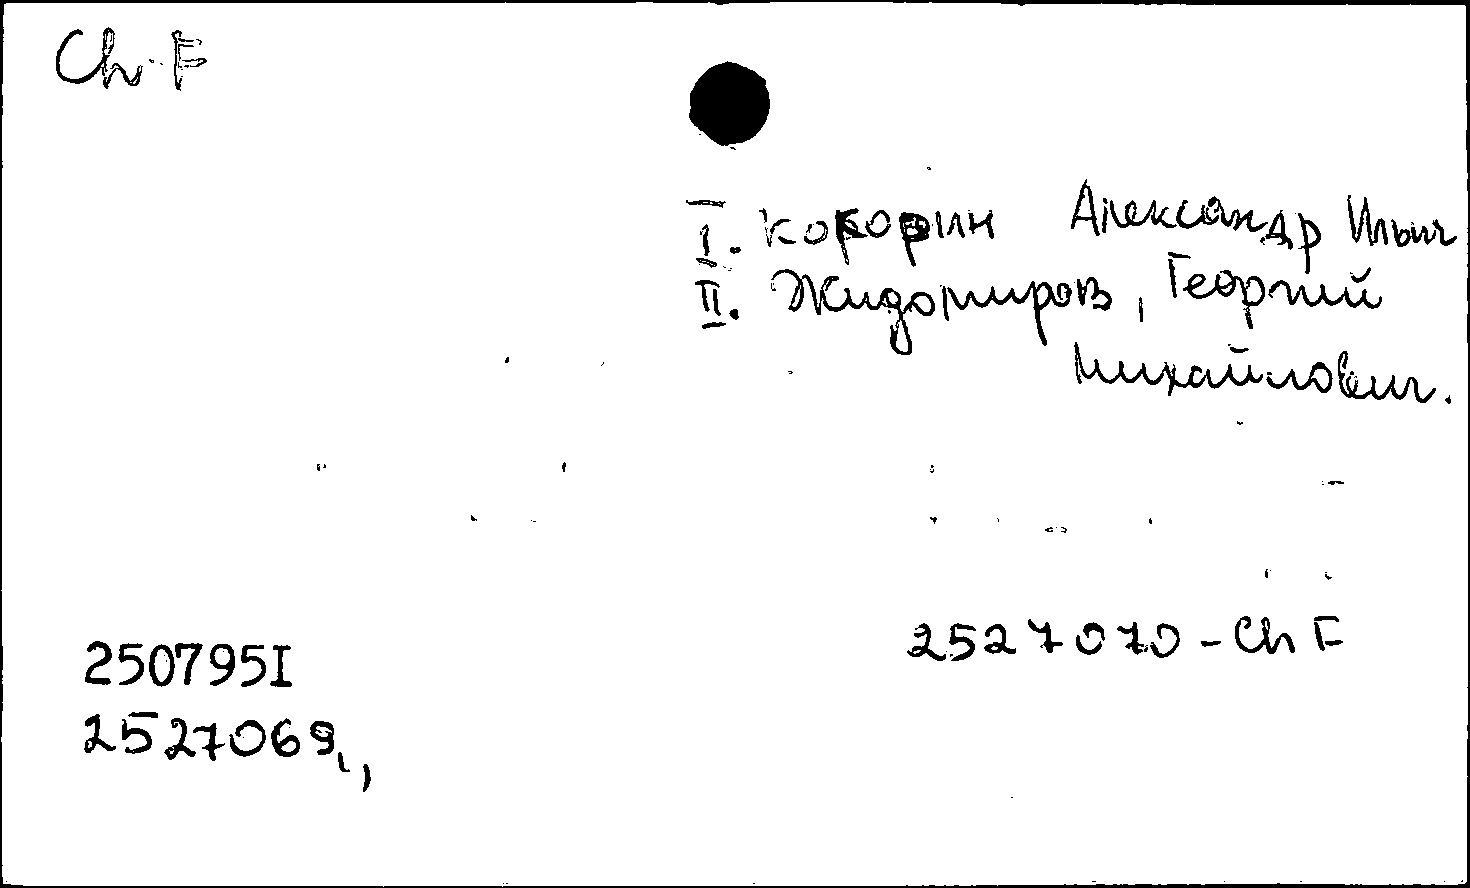 Ch-F
I. Кокорин Александр Ильич
II. Жидомиров, Георгий
Михайлович.
2527070-Ch F
250795I
2527069,,